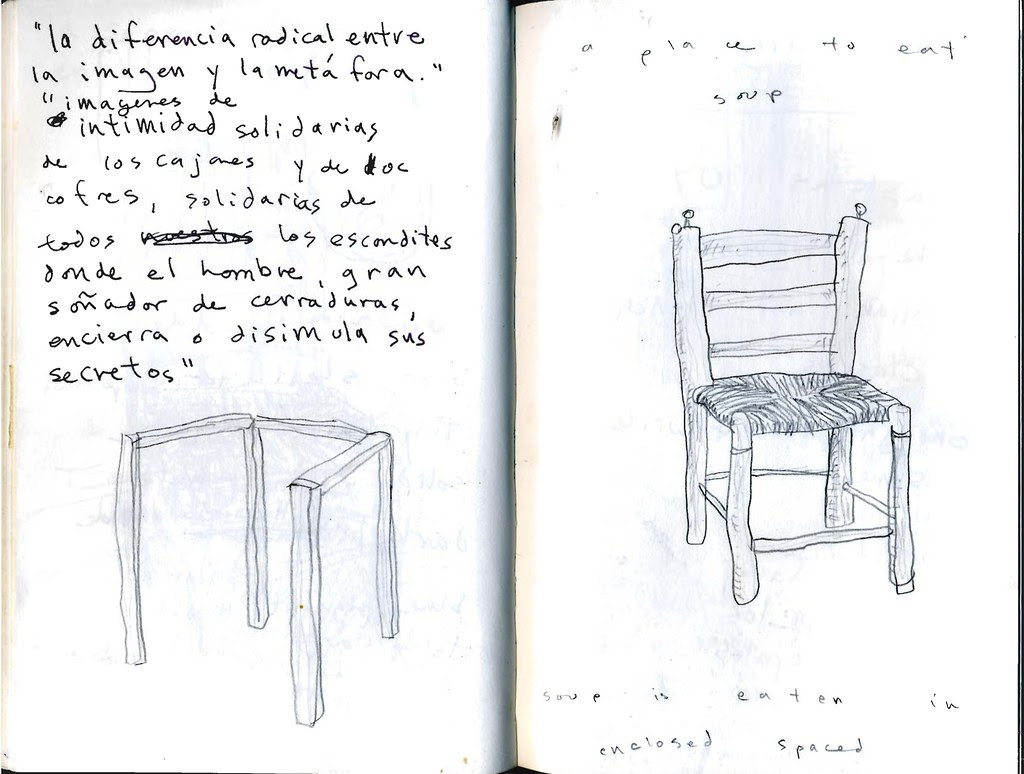 "la diferencia radical entre
la imagen y la metáfora."
"imagenes de
intimidad solidarias
de los cajones y de loc
cofres, solidarias de
todos los escondites
donde el hombre, gran
soñador de cerraduras,
encierra o disimula sus
secretos"
a place to eat
soup
soup is eaten in
enclosed spaced